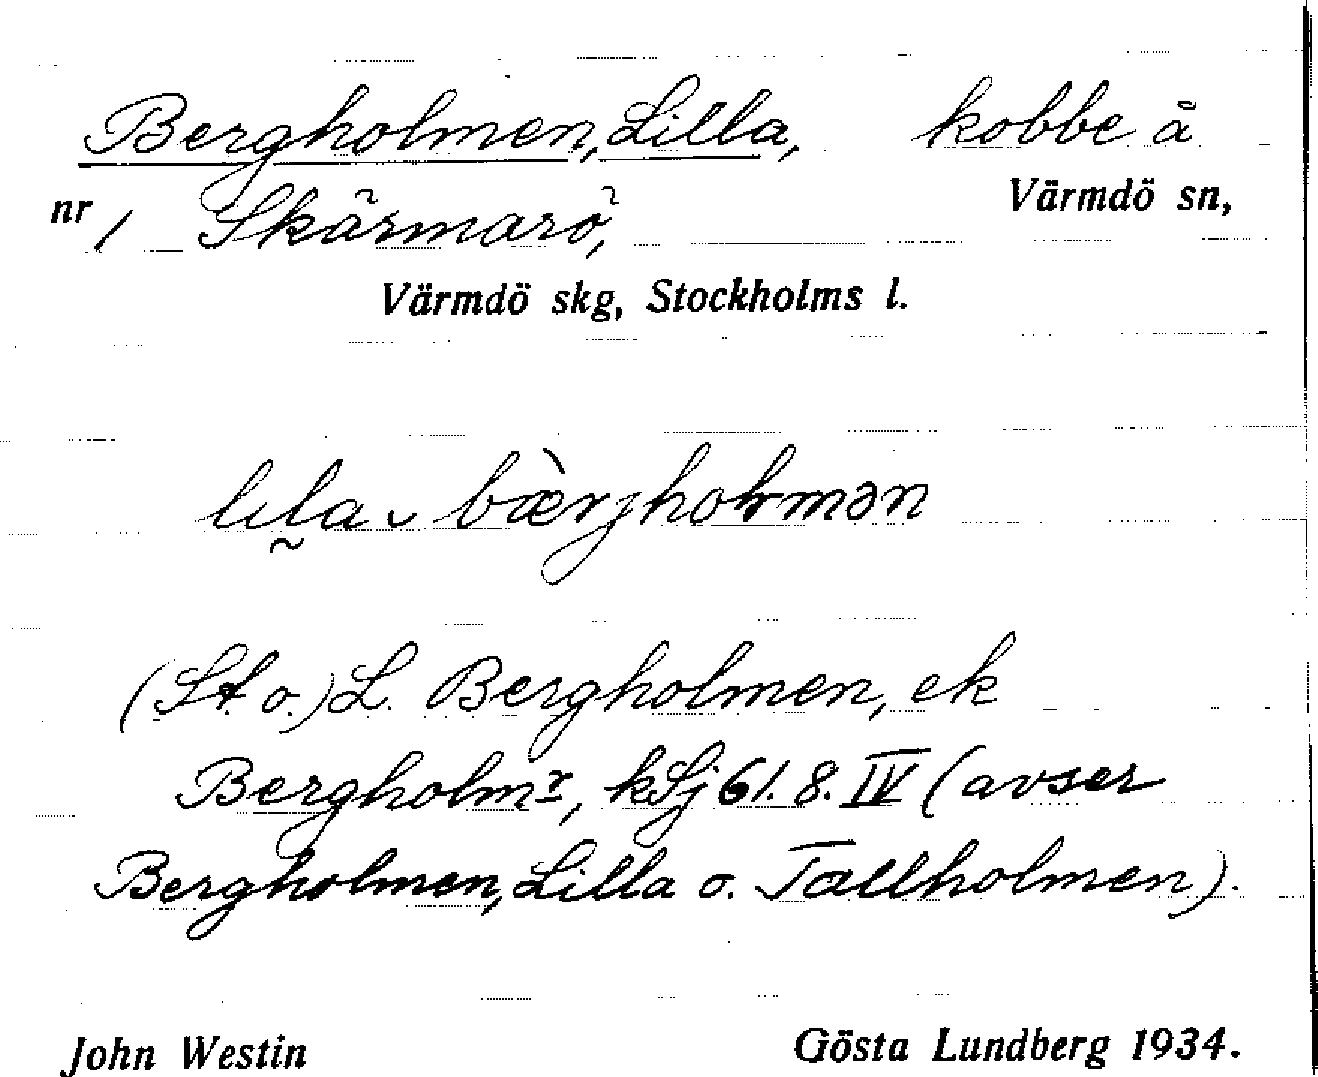 Bergholmen, Lilla, kobbe å
nr 1 Skärmarö, Värmdö sn,
Värmdö skg, Stockholms l.
lıla ˬ bæ̀rjholmən
(St. o.) L. Bergholmen, ek
Bergholmr, kSj 61. 8. IV (avser
Bergholmen, Lilla o. Tallholmen).
John Westin Gösta Lundberg 1934.